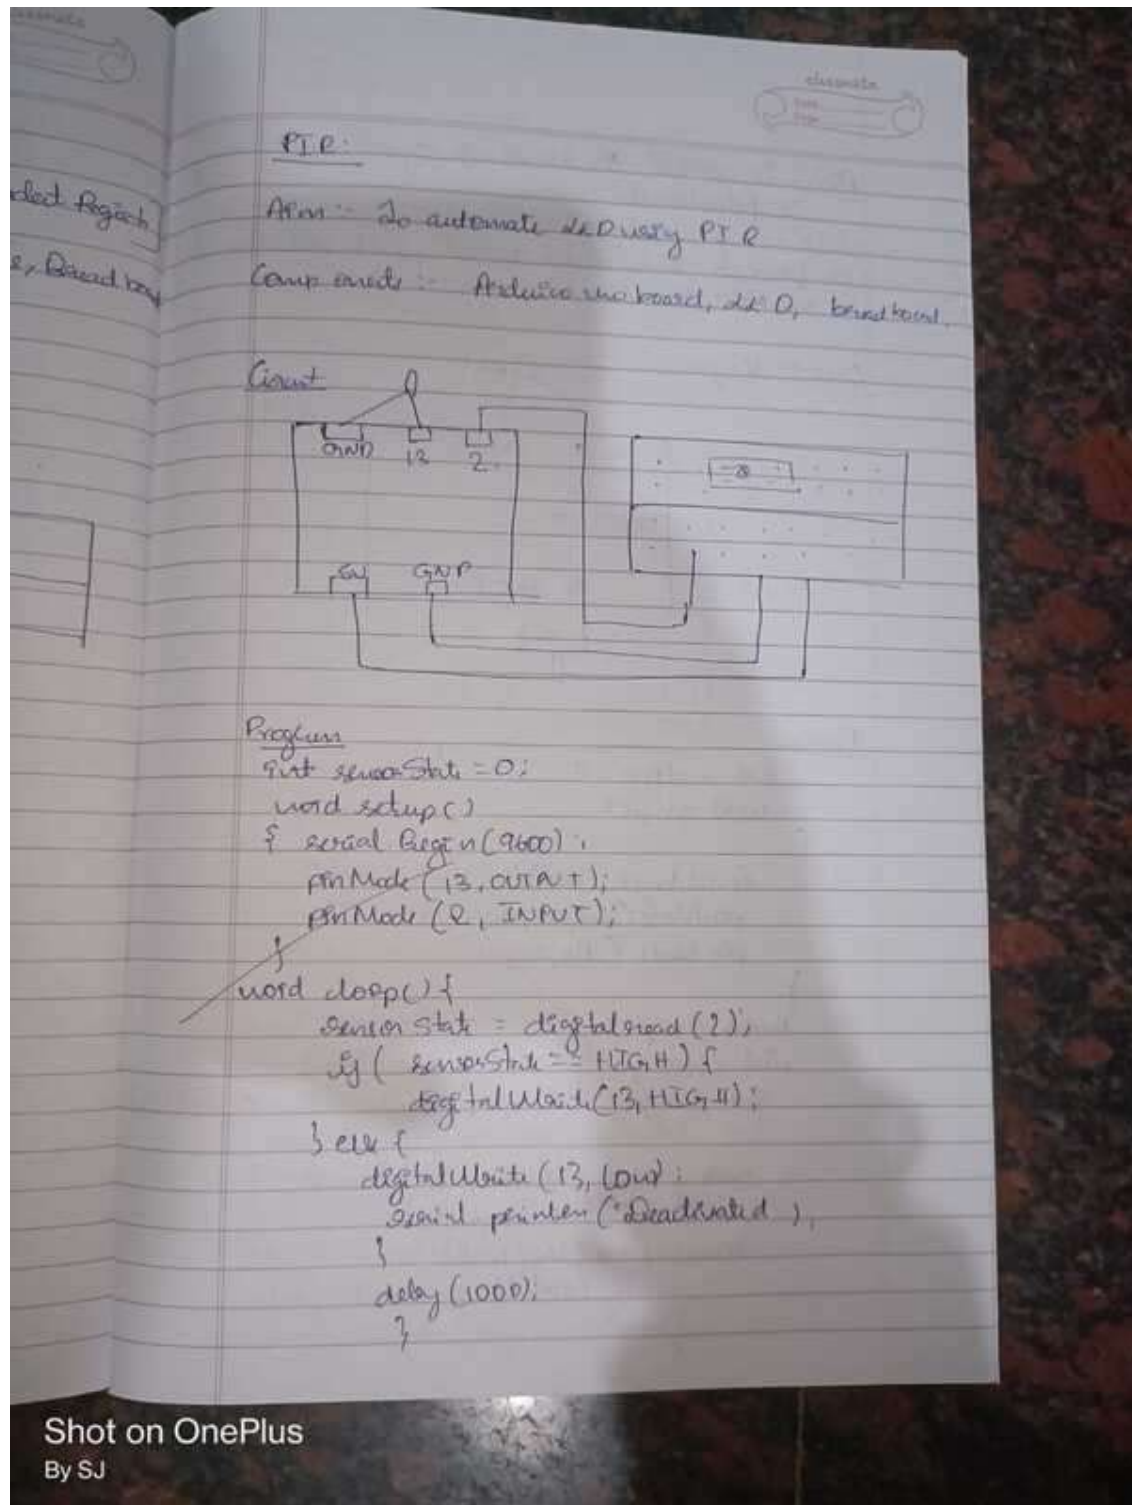 classmate
ded Project
e, Bread boa
PIR:
Aim :- To automate LED using PIR
Components :- Arduino uno board, LED, breadboard.
Circuit
GND 13 2
5V GND
Program
int sensorState = 0;
void setup()
{ serial Begin(9600);
pinMode (13, OUTPUT);
pinMode (2, INPUT);
}
void loop() {
sensor State = digitalread (2);
if ( sensorState == HIGH) {
digitalWrite(13, HIGH);
} else {
digitalWrite (13, Low);
serial println ("Deactivated ),
}
delay (1000);
}
Shot on OnePlus
By SJ